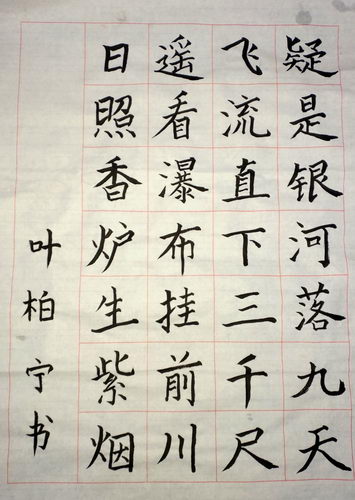 日照香炉生紫烟
遥看瀑布挂前川
飞流直下三千尺
疑是银河落九天
叶柏宁书